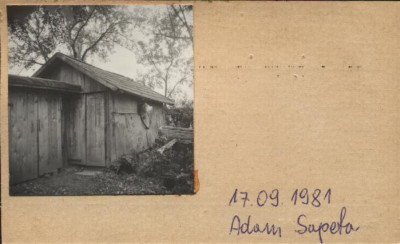 17.09.1981
Adam Sapeta